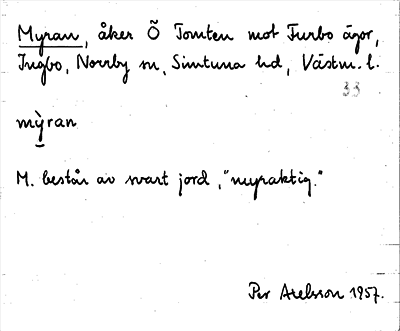 Myran, åker Õ Tomten mot Furbo ägor,
Ingbo, Norrby sn, Simtuna hd, Västm. l.
33
mỳran
M. består av svart jord, "myraktig."
Per Axelsson 1957.